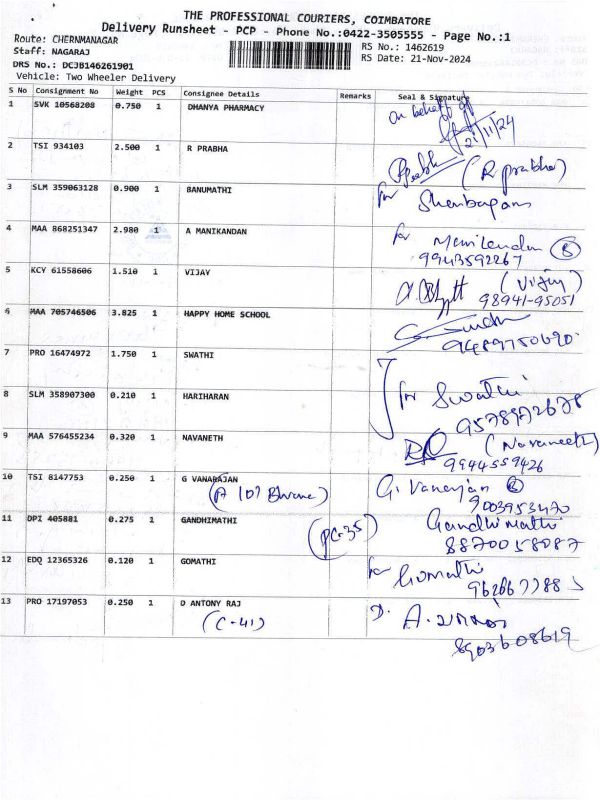 THE PROFESSIONAL COURIERS, COIMBATORE
Delivery Runsheet - PCP - Phone No.:0422-3505555 - Page No.:1
Route: CHERNMANAGAR RS No.: 1462619
Staff: NAGARAJ RS Date: 21-Nov-2024
DRS No.: DCJB146261901
Vehicle: Two Wheeler Delivery
S No Consignment No Weight PCS Consignee Details Remarks Seal & Signature
1 SVK 10568208 0.750 1 DHANYA PHARMACY On behalf of 21/11/24
2 TSI 934103 2.500 1 R PRABHA (R. prabha)
3 SLM 359063128 0.900 1 BANUMATHI for Shenbagam
4 MAA 868251347 2.980 1 A MANIKANDAN for Manikandan
9943592267
5 KCY 61558606 1.510 1 VIJAY (Vijay)
98941-95051
6 MAA 705746506 3.825 1 HAPPY HOME SCHOOL
9489750690
7 PRO 16474972 1.750 1 SWATHI
8 SLM 358907300 0.210 1 HARIHARAN for Swathi
9578972678
9 MAA 576455234 0.320 1 NAVANETH (Navaneeth)
9944559426
10 TSI 8147753 0.250 1 G VANARAJAN G. Vanarajan
(A 107 Bhrame) 9003953470
11 DPI 405881 0.275 1 GANDHIMATHI (PC-35) Gandhimathi
8870058087
12 EDQ 12365326 0.120 1 GOMATHI for Gomathi
13 PRO 17197053 0.250 1 D ANTONY RAJ D. A.
(C-41) 8903608619